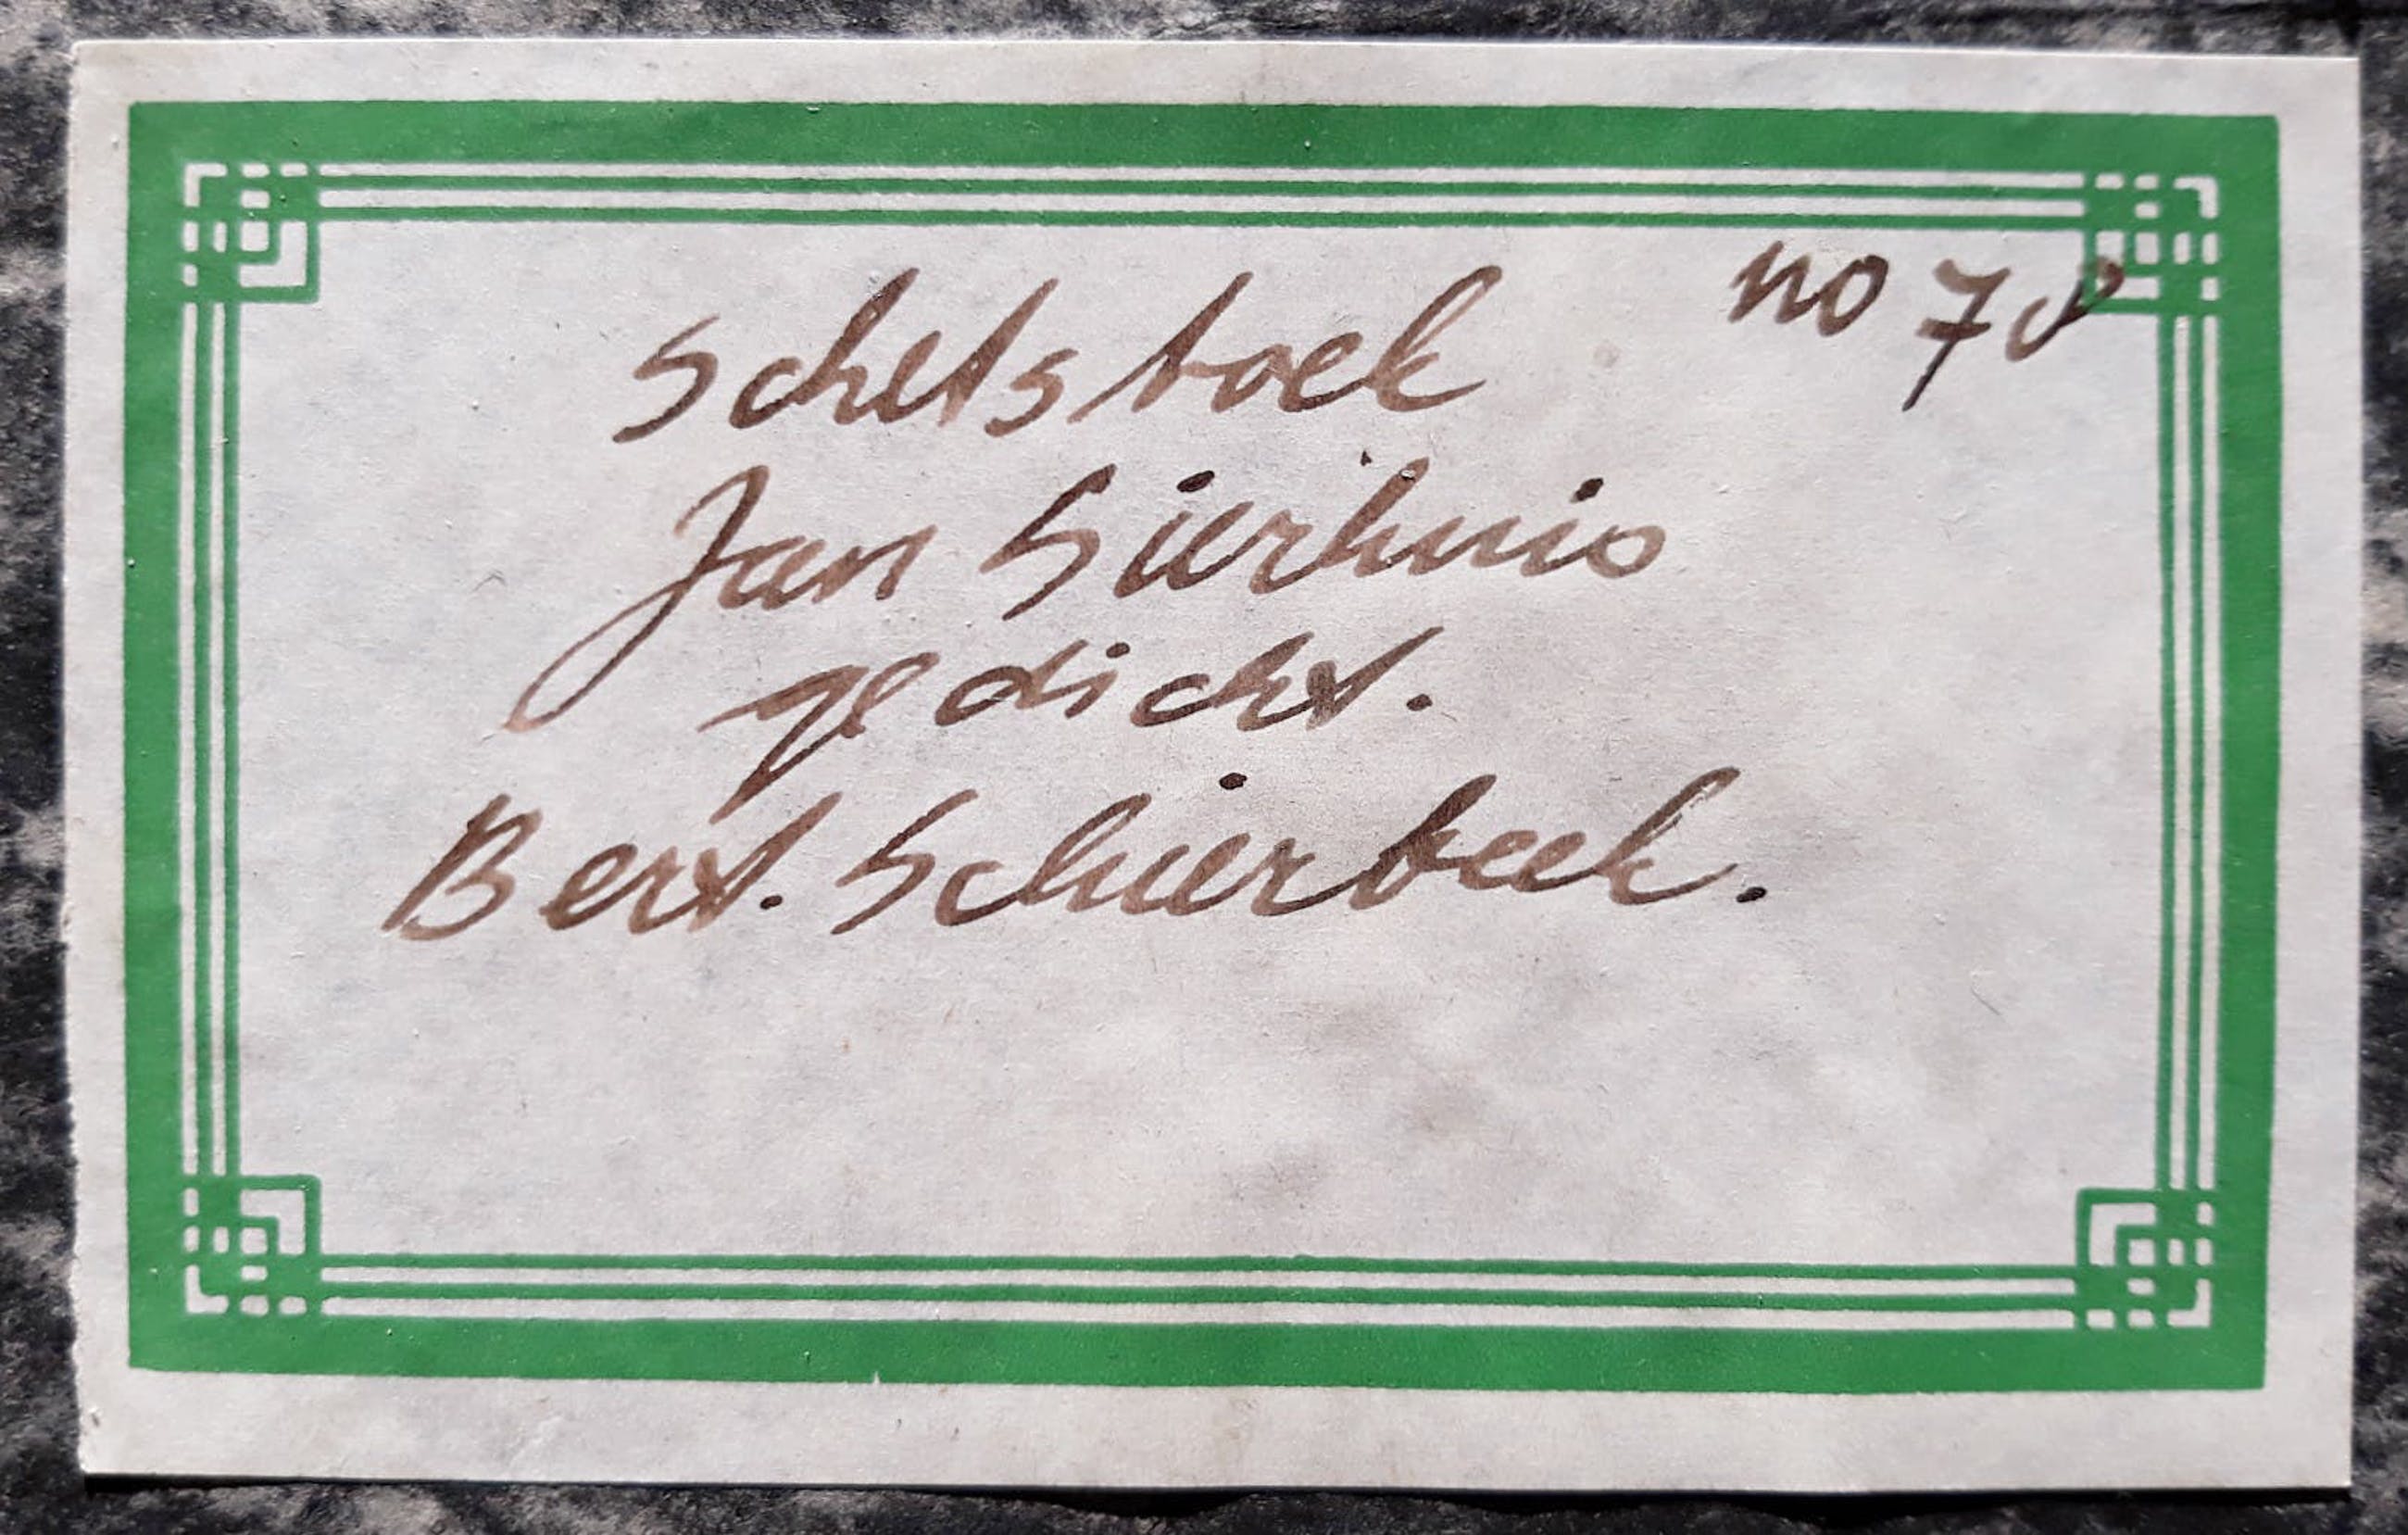 no 78
Schetsboek
Jan Sierhuis
gedicht.
Bert. Schierbeek.